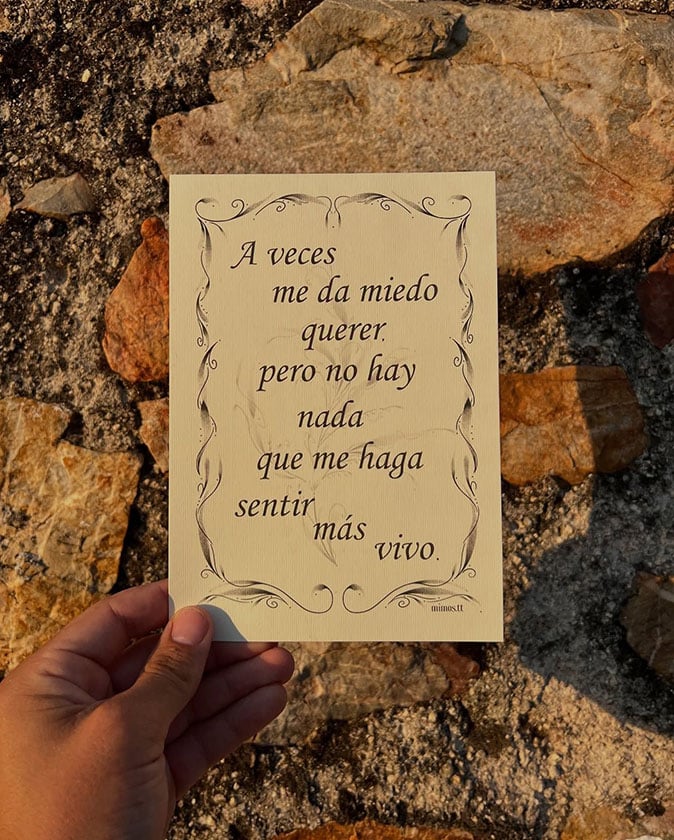 A veces
me da miedo
querer,
pero no hay
nada
que me haga
sentir
más
vivo.
mimos.tt